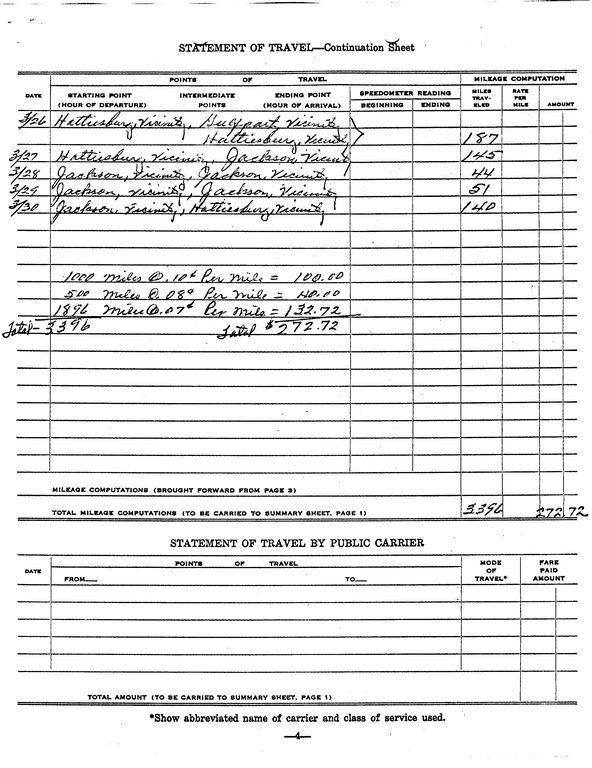 STATEMENT OF TRAVEL—Continuation Sheet
POINTS OF TRAVEL MILEAGE COMPUTATION
DATE STARTING POINT (HOUR OF DEPARTURE) INTERMEDIATE POINTS ENDING POINT (HOUR OF ARRIVAL) SPEEDOMETER READING BEGINNING ENDING MILES TRAV- ELED RATE PER MILE AMOUNT
3/26 Hattiesburg, Vicinity, Gulfport, Vicinity,
Hattiesburg, Vicinity 187
3/27 Hattiesburg, Vicinity, Jackson, Vicinity 145
3/28 Jackson, Vicinity, Jackson, Vicinity, 44
3/29 Jackson, Vicinity, Jackson, Vicinity 51
3/30 Jackson, Vicinity, Hattiesburg, Vicinity, 140
1000 miles @ .10¢ Per Mile = 100.00
500 miles @ .08¢ Per Mile = 40.00
1896 miles @ .07¢ Per Mile = 132.72
Total - 3396 Total $272.72
MILEAGE COMPUTATIONS (BROUGHT FORWARD FROM PAGE 3)
TOTAL MILEAGE COMPUTATIONS (TO BE CARRIED TO SUMMARY SHEET, PAGE 1) 3396 272.72
STATEMENT OF TRAVEL BY PUBLIC CARRIER
DATE POINTS OF TRAVEL MODE OF TRAVEL* FARE PAID AMOUNT
FROM— TO—
TOTAL AMOUNT (TO BE CARRIED TO SUMMARY SHEET, PAGE 1)
*Show abbreviated name of carrier and class of service used.
—4—